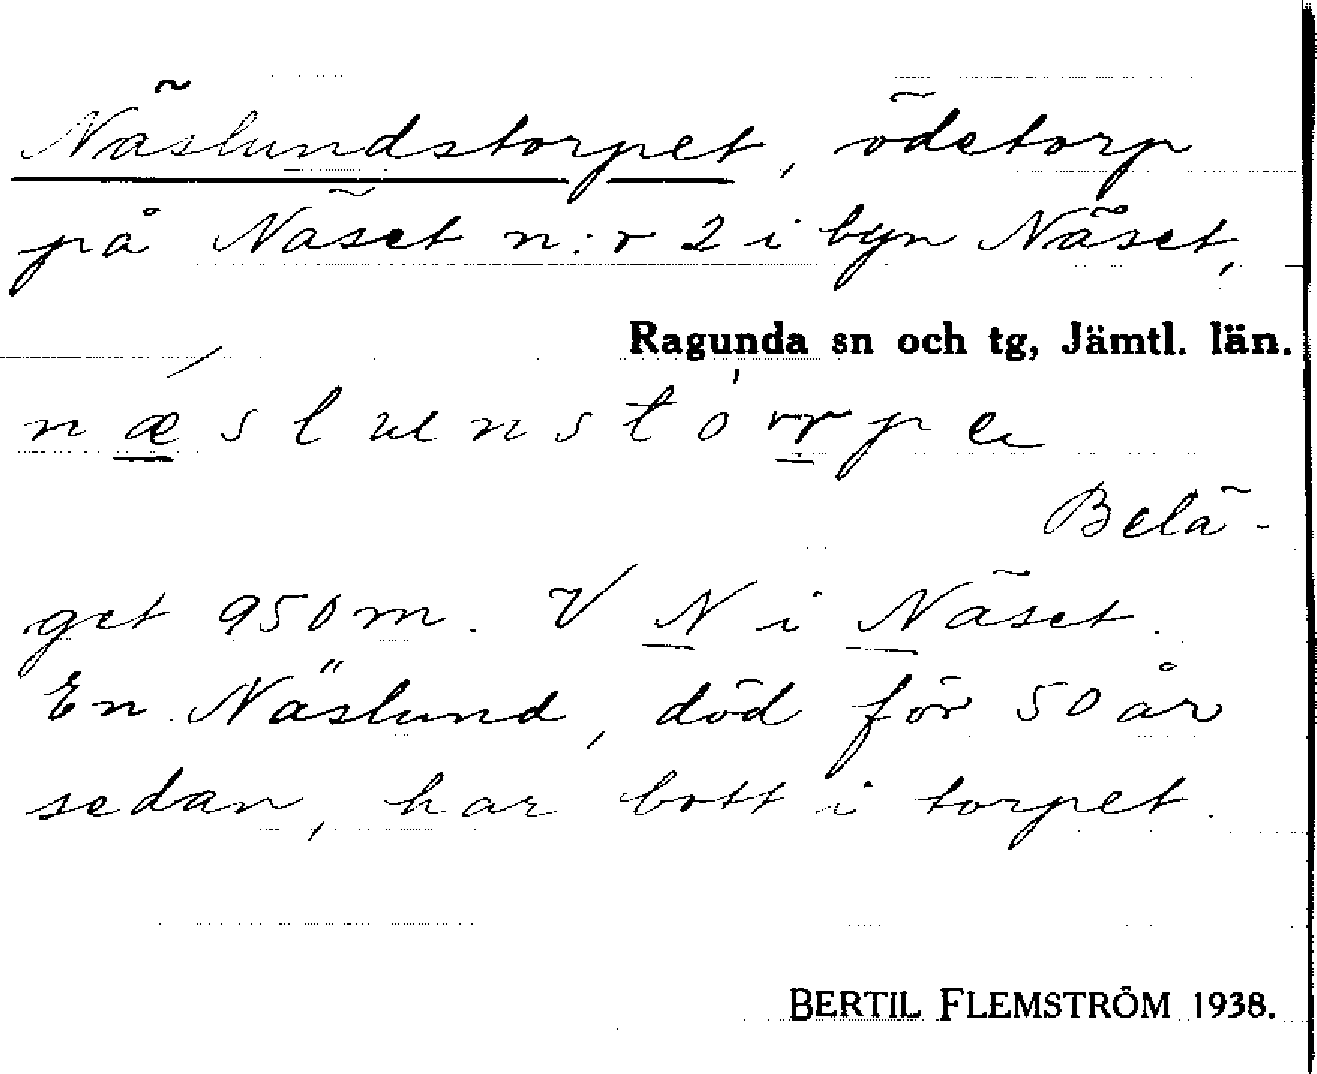 Näslundstorpet, ödetorp
på Näset n:r 2 i byn Näset,
Ragunda sn och tg, Jämtl. län.
næslunstórrpe
Belä-
get 950 m. V N i Näset.
En Näslund, död för 50 år
sedan, har bott i torpet.
BERTIL FLEMSTRÖM 1938.